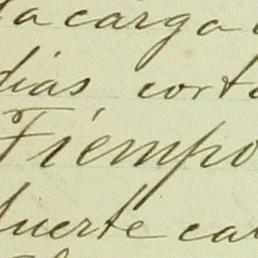 la carga
dias corta
Tiempo
fuerte ca